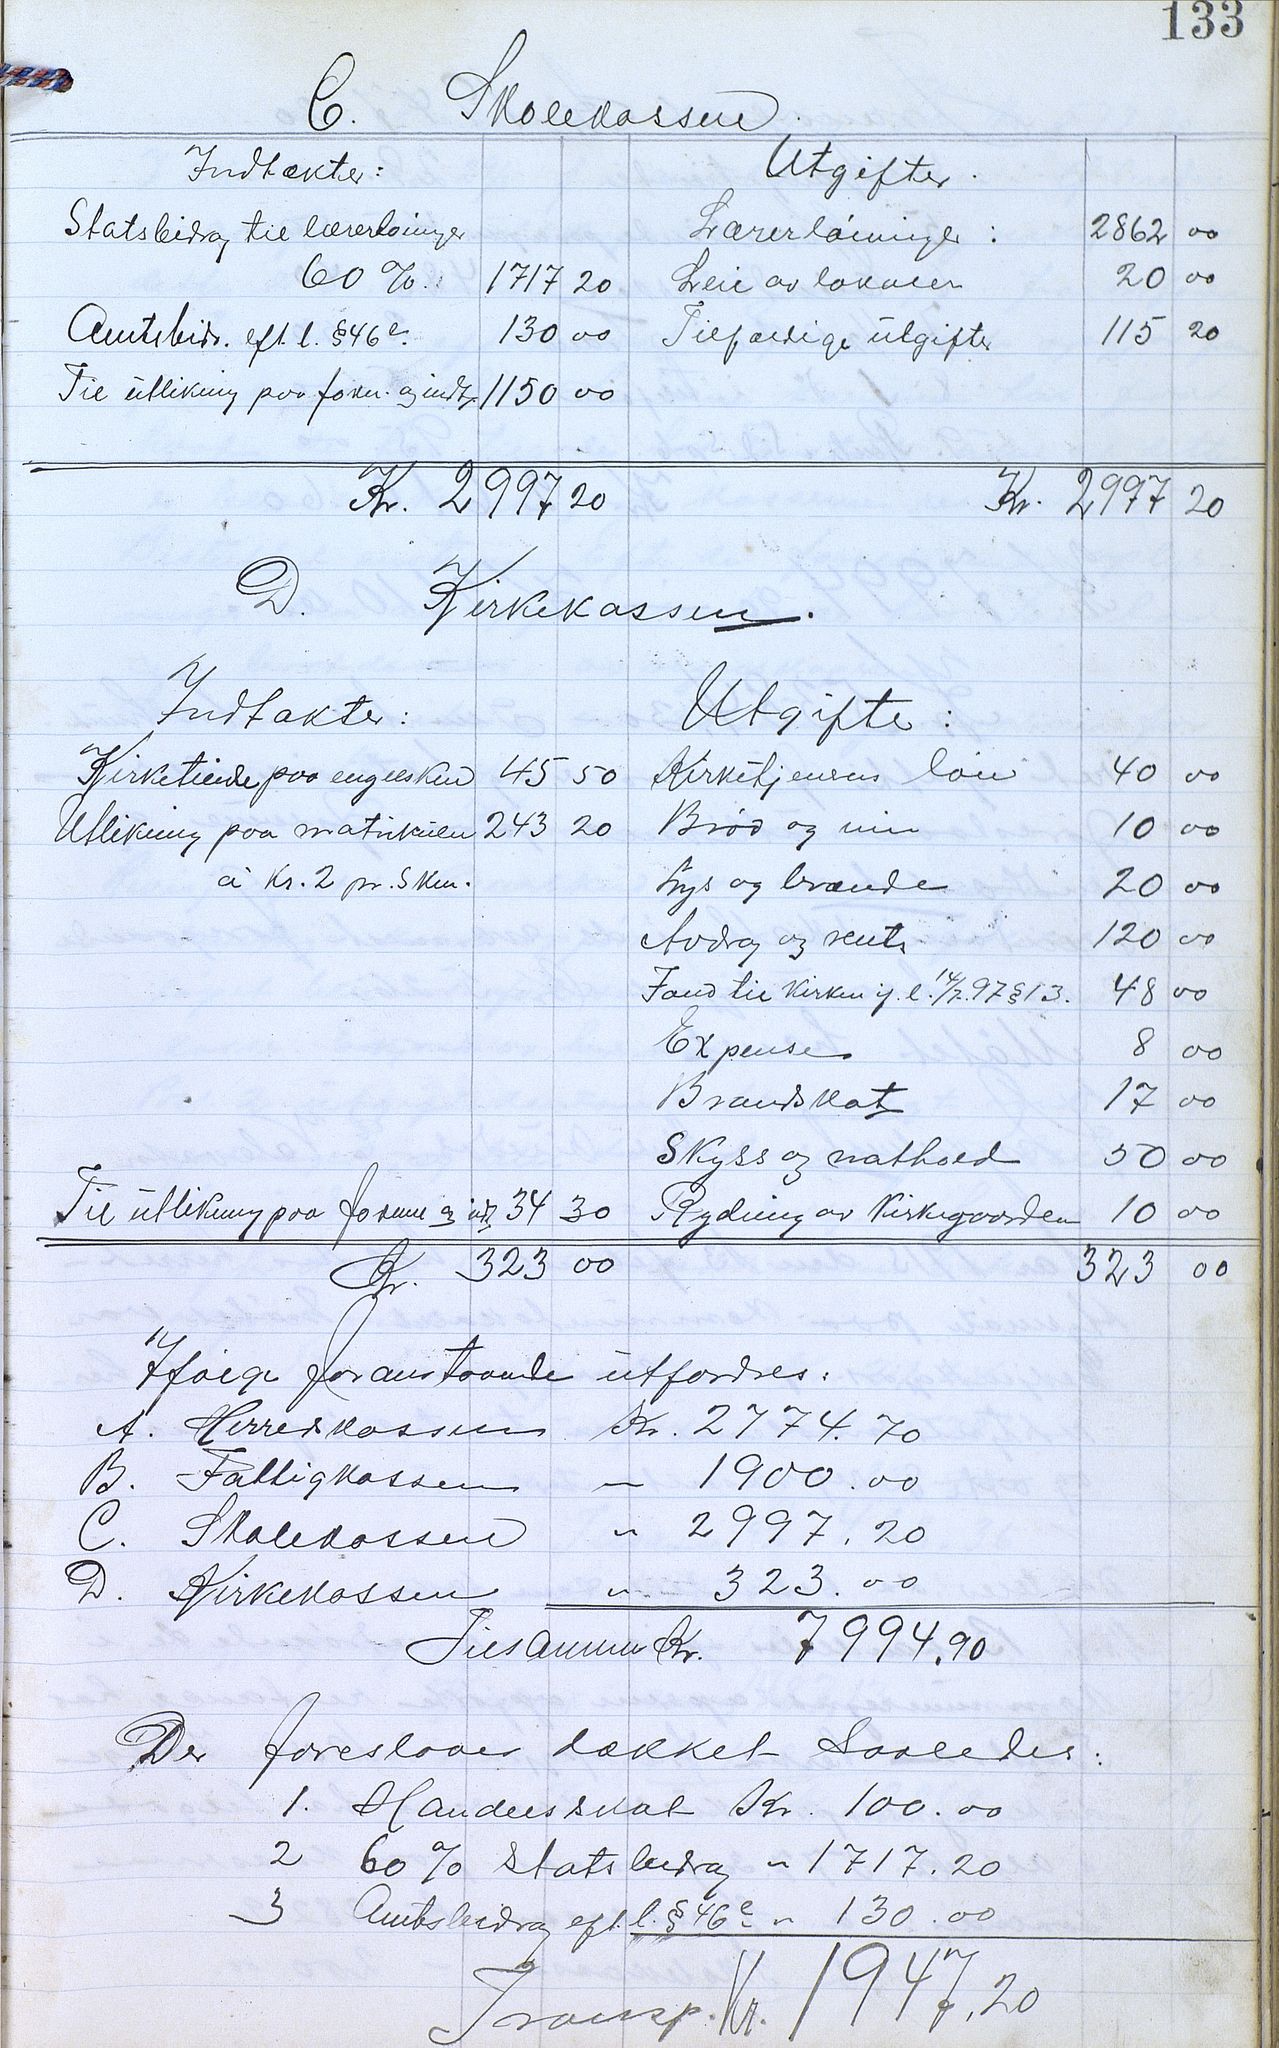 133
C. Skolekassen.
Indtækter: Utgifter.
Statsbidrag til lærerløninger Lærerløninger: 2862 00
60 %. 1717 20 Leie av lokaler 20 00
Amtsbidr. eft. l. § 46 e. 130 00 Tilfældige utgifter 115 20
Til utlikning paa form. og indt. 1150 00
Kr. 2997 20 Kr. 2997 20
D. Kirkekassen.
Indtækter: Utgifter:
Kirketiende paa engelsken 45 50 Kirketjenerens løn 40 00
Utlikning paa matrikulen 243 20 Brød og vin 10 00
à Kr. 2 pr. Skm. Lys og brænde 20 00
Avdrag og renter 120 00
Fond til kirken if. l. 14/7.97 § 13. 48 00
Expenser 8 00
Brandskat 17 00
Skyss og nathold 50 00
Til utlikning paa formue og indt. 34 30 Rydning av kirkegaarden 10 00
Kr. 323 00 323 00
Ifølge foranstaaende utfordres:
A. Herredskassen Kr. 2774.70
B. Fattigkassen " 1900.00
C. Skolekassen " 2997.20
D. Kirkekassen " 323.00
Tilsammen Kr. 7994.90
Der foreslaaes dækket saaledes:
1. Handelsskat Kr. 100.00
2 60 % Statsbidrag " 1717.20
3 Amtsbidrag eft. l. § 46 e " 130.00
Transp. Kr. 1947.20